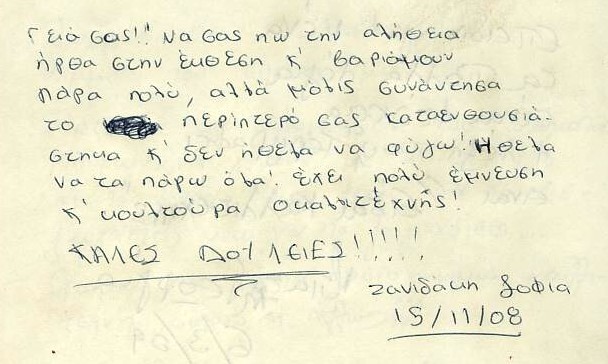 Γειά σας!! Να σας πω την αλήθεια
ήρθα στην έκθεση κ' βαριόμουν
πάρα πολύ, αλλά μόλις συνάντησα
το περίπτερό σας καταενθουσιά-
στηκα κ' δεν ήθελα να φύγω! Ήθελα
να τα πάρω όλα! έχει πολύ έμνευση
κ' κουλτούρα ο καλιτέχνής!
ΚΑΛΕΣ ΔΟΥΛΕΙΕΣ!!!!!
Τζανιδακη Σοφια
15/11/08